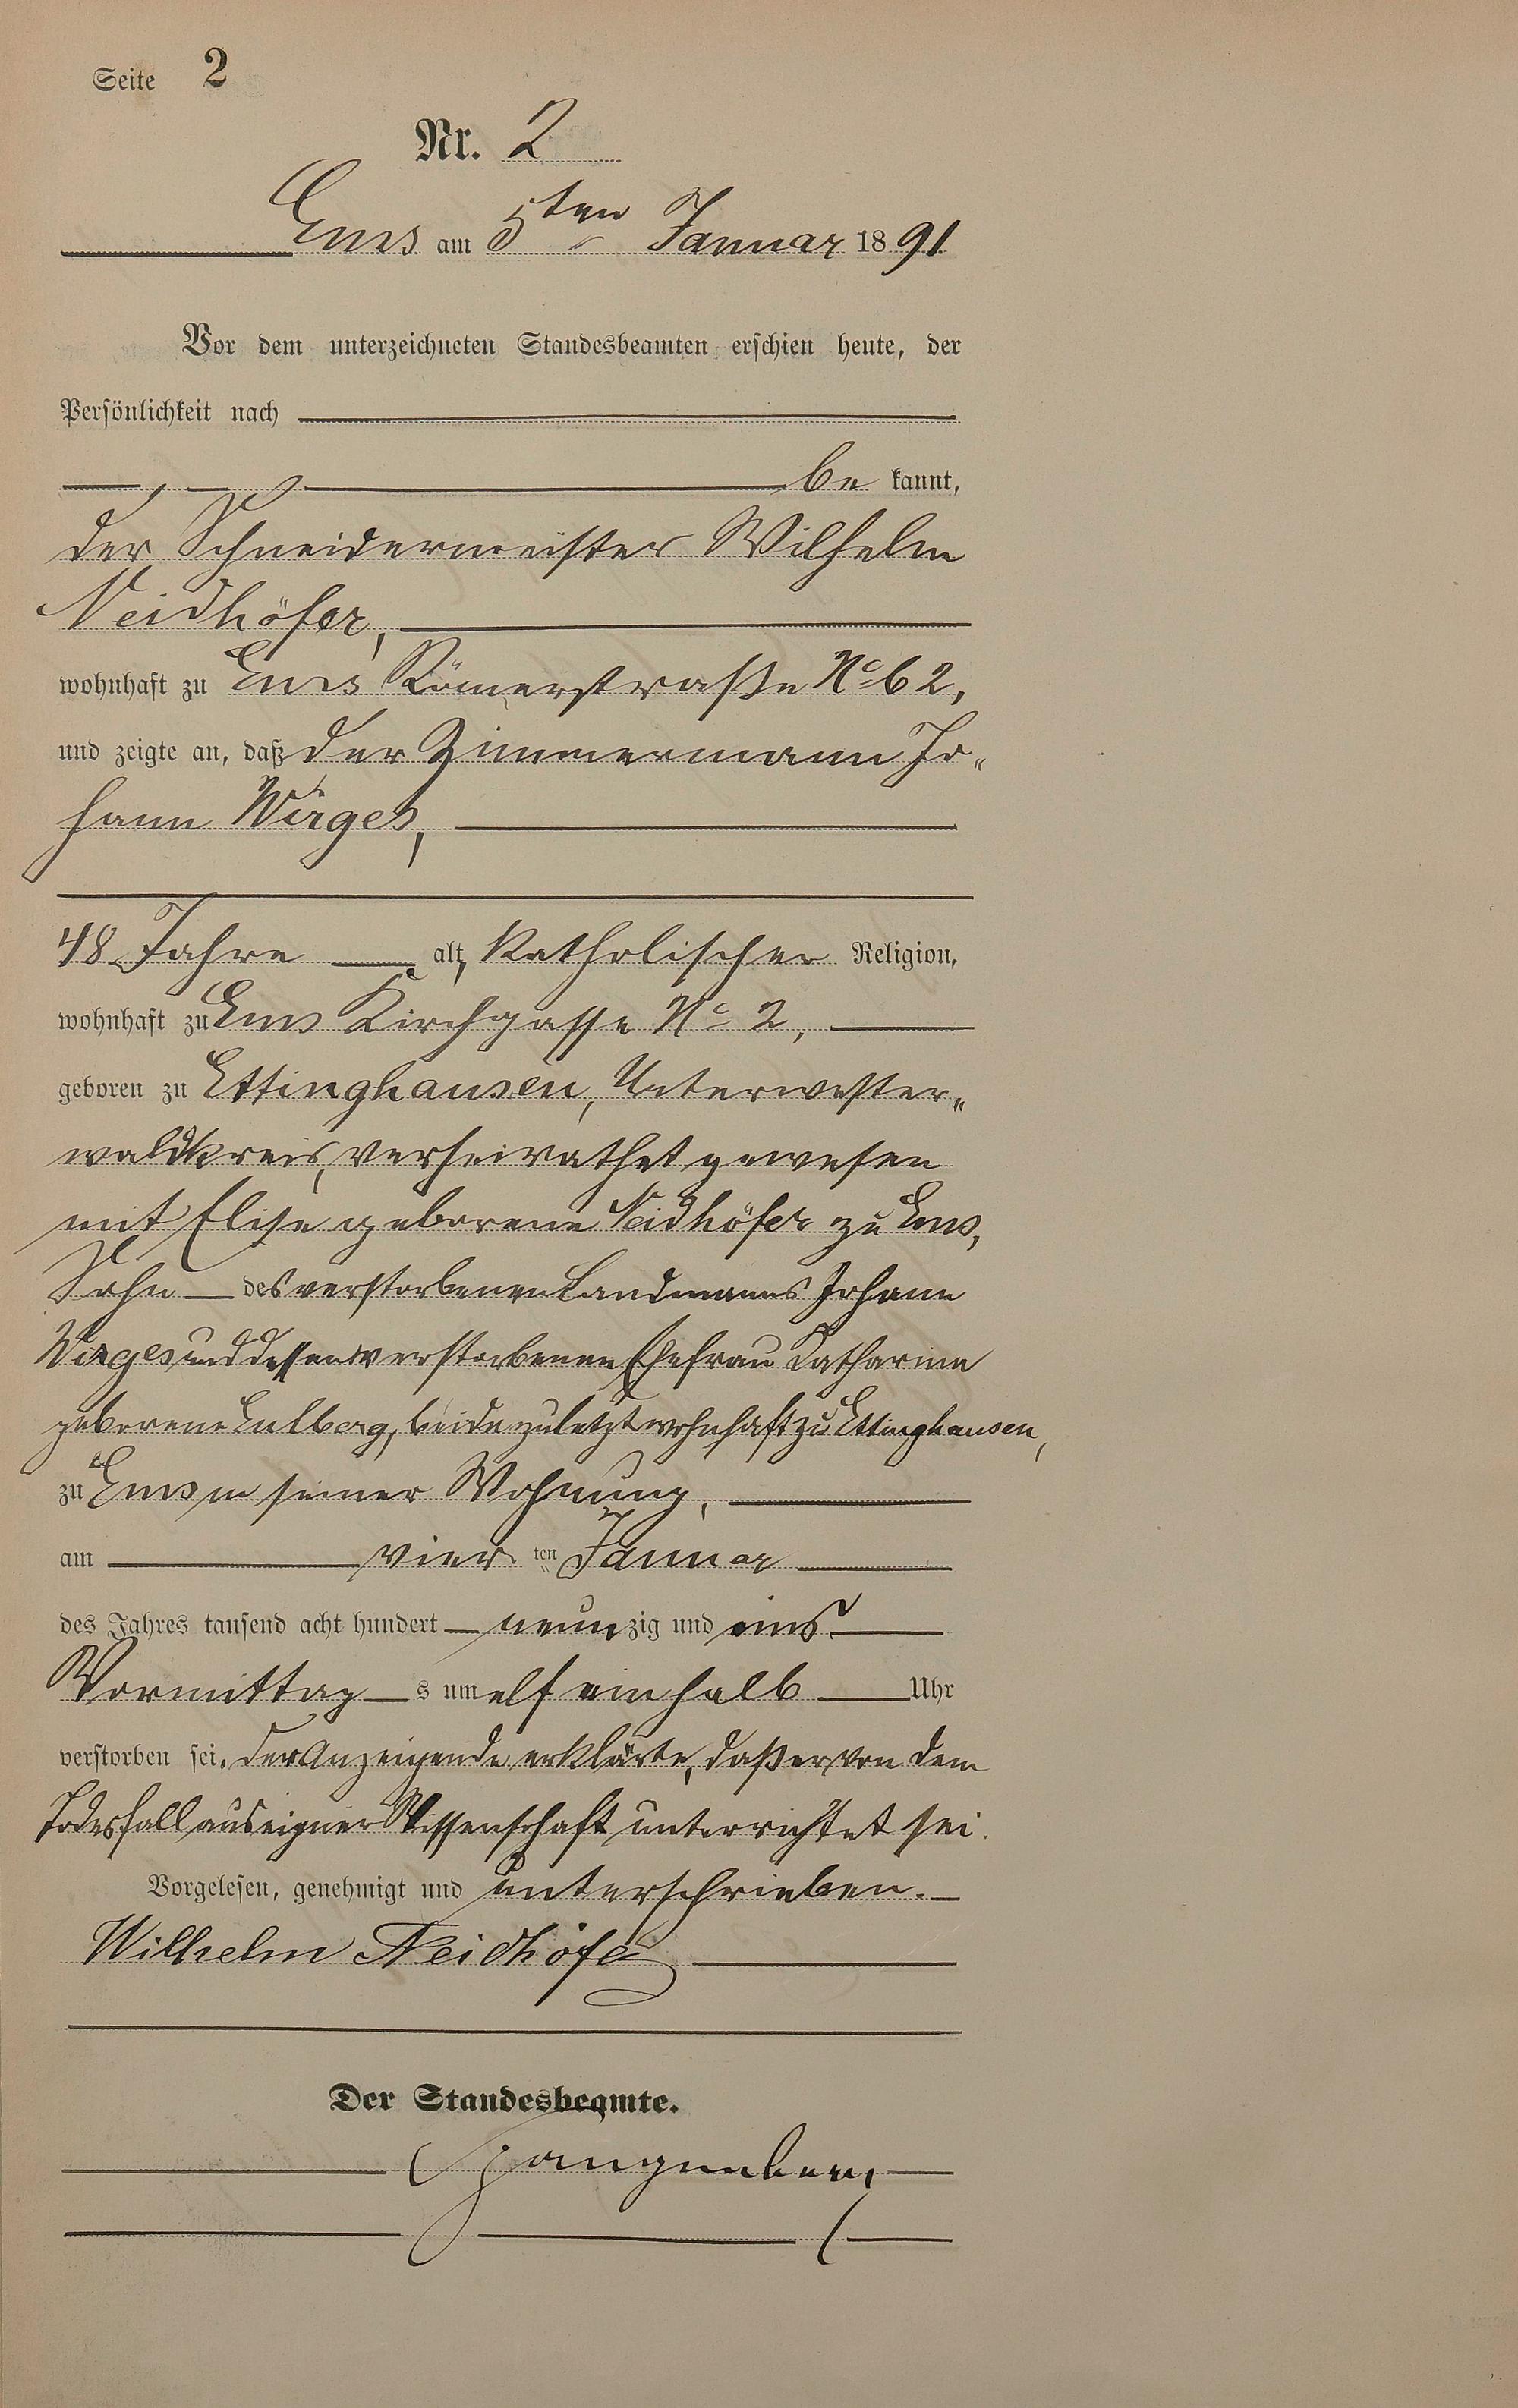 Seite 2
Nr. 2
Ems am 5ten Januar 1891
Vor dem unterzeichneten Standesbeamten erschien heute, der
Persönlichkeit nach
be kannt,
der Schneidermeister Wilhelm
Neidhöfer,
wohnhaft zu Ems Römerstraße No 62,
und zeigte an, daß der Zimmermann Jo„
hann Wirges,
48 Jahre alt, katholischer Religion,
wohnhaft zu Ems Kirchgasse No 2,
geboren zu Ettinghausen, Unterwester„
waldkreis, verheirathet gewesen
mit Elise geborene Neidhöfer zu Ems,
Sohn des verstorbenen Landmanns Johann
Wirges und dessen verstorbenen Ehefrau Katharina
geborene Eulberg, beide zuletzt wohnhaft zu Ettinghausen,
zu Ems in seiner Wohnung,
am vier ten Januar
des Jahres tausend acht hundert neun zig und eins
Vormittag s um elf ein halb Uhr
verstorben sei. Der Anzeigende erklärte, daß er von dem
Todesfall aus eigner Wissenschaft unterrichtet sei.
Vorgelesen, genehmigt und unterschrieben.
Wilhelm Neidhöfer
Der Standesbeamte.